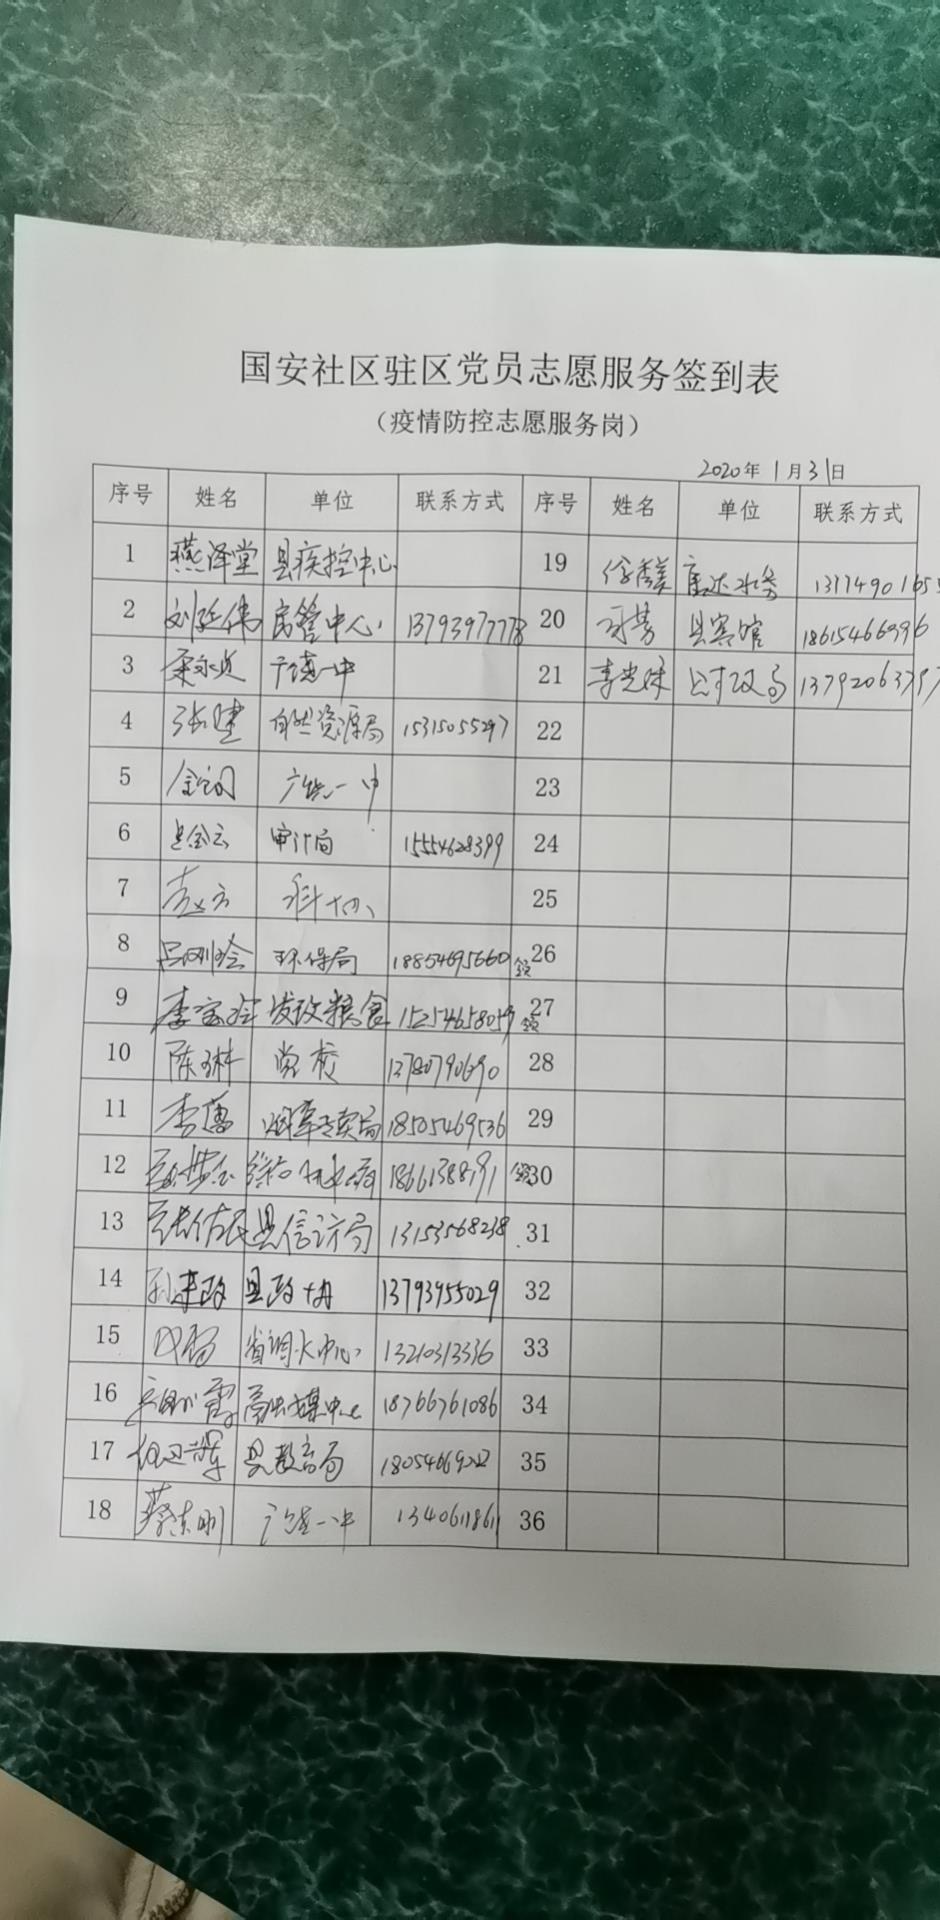 国安社区驻区党员志愿服务签到表
（疫情防控志愿服务岗）
2020年1月31日
序号 姓名 单位 联系方式 序号 姓名 单位 联系方式
1 燕泽堂 县疾控中心 19 康达水务
2 刘延伟 房管中心 13793977778 20 县宾馆 18615466996
3 一中 21 李光妹 县财政局
4 张建 自然资源局 15315055297 22
5 一中 23
6 审计局 15554628399 24
7 科协 25
8 环保局 18854695660 26
9 李宝玲 发改粮食 15254658059 27
10 陈琳 党校 13780790690 28
11 李倩 烟草专卖局 18505469536 29
12 18661388191 30
13 张佑民 县信访局 13153568238 31
14 孙建政 县政协 13793955029 32
15 中心 13210313336 33
16 霞 融媒中心 18766761086 34
17 县教育局 35
18 蔡东刚 一中 13406118611 36